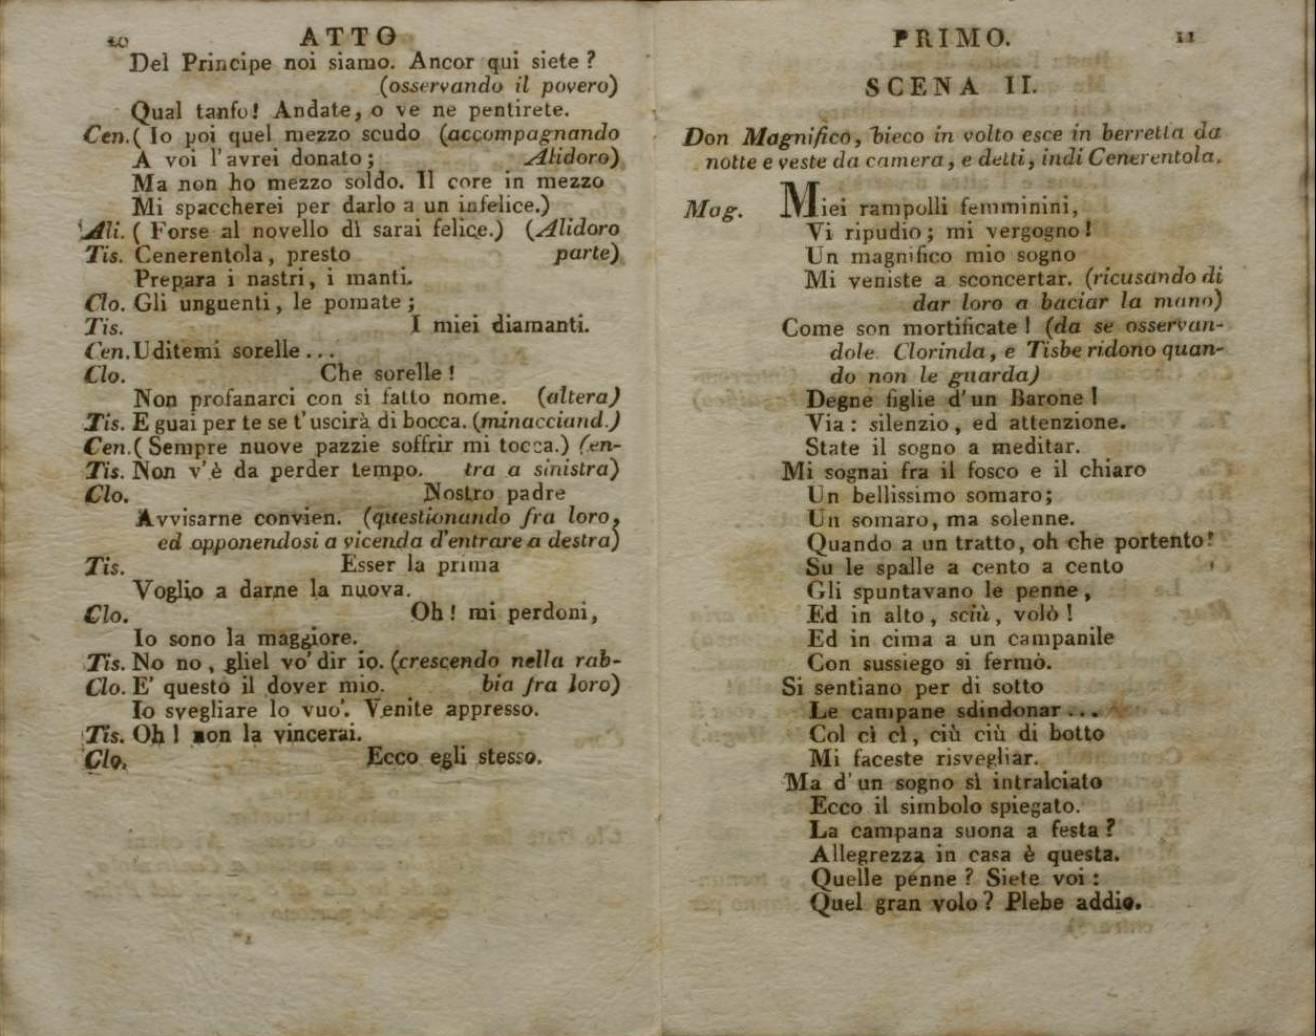 10 ATTO
Del Principe noi siamo. Ancor qui siete ?
(osservando il povero)
Qual tanfo! Andate, o ve ne pentirete.
Cen. ( Io poi quel mezzo scudo (accompagnando
A voi l'avrei donato ; Alidoro)
Ma non ho mezzo soldo. Il core in mezzo
Mi spaccherei per darlo a un infelice.)
Ali. ( Forse al novello dì sarai felice.) (Alidoro
Tis. Cenerentola, presto parte)
Prepara i nastri, i manti.
Clo. Gli unguenti, le pomate ;
Tis. I miei diamanti.
Cen. Uditemi sorelle ...
Clo. Che sorelle !
Non profanarci con sì fatto nome. (altera)
Tis. E guai per te se t'uscirà di bocca. (minacciand.)
Cen. ( Sempre nuove pazzie soffrir mi tocca.) (en-
Tis. Non v'è da perder tempo. tra a sinistra)
Clo. Nostro padre
Avvisarne convien. (questionando fra loro,
ed opponendosi a vicenda d'entrare a destra)
Tis. Esser la prima
Voglio a darne la nuova.
Clo. Oh! mi perdoni,
Io sono la maggiore.
Tis. No no, gliel vo' dir io. (crescendo nella rab-
Clo. E' questo il dover mio. bia fra loro)
Io svegliare lo vuo'. Venite appresso.
Tis. Oh ! non la vincerai.
Clo. Ecco egli stesso.
PRIMO. 11
SCENA II.
Don Magnifico, bieco in volto esce in berretta da
notte e veste da camera, e detti, indi Cenerentola.
Mag. Miei rampolli femminini,
Vi ripudio; mi vergogno!
Un magnifico mio sogno
Mi veniste a sconcertar. (ricusando di
dar loro a baciar la mano)
Come son mortificate ! (da se osservan-
dole. Clorinda, e Tisbe ridono quan-
do non le guarda)
Degne figlie d'un Barone !
Via : silenzio, ed attenzione.
State il sogno a meditar.
Mi sognai fra il fosco e il chiaro
Un bellissimo somaro;
Un somaro, ma solenne.
Quando a un tratto, oh che portento!
Su le spalle a cento a cento
Gli spuntavano le penne,
Ed in alto, sciù, volò !
Ed in cima a un campanile
Con sussiego si fermò.
Si sentiano per di sotto
Le campane sdindonar ...
Col cì cì, ciù ciù di botto
Mi faceste risvegliar.
Ma d'un sogno sì intralciato
Ecco il simbolo spiegato.
La campana suona a festa ?
Allegrezza in casa è questa.
Quelle penne ? Siete voi :
Quel gran volo ? Plebe addio.